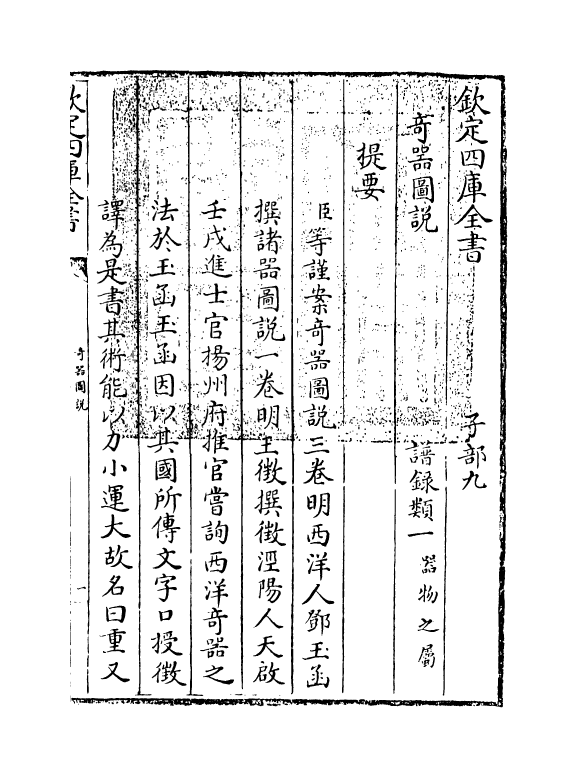 欽定四庫全書　子部九
奇器圖説　譜録類一器物之屬
提要
臣等謹案奇器圖説三卷明西洋人鄧玉函
撰諸器圖説一卷明王徴撰徴涇陽人天啟
壬戌進士官揚州府推官嘗詢西洋奇器之
法於玉函玉函因以其國所傳文字口授徴
譯為是書其術能以力小運大故名曰重又
欽定四庫全書
奇器圖説
一